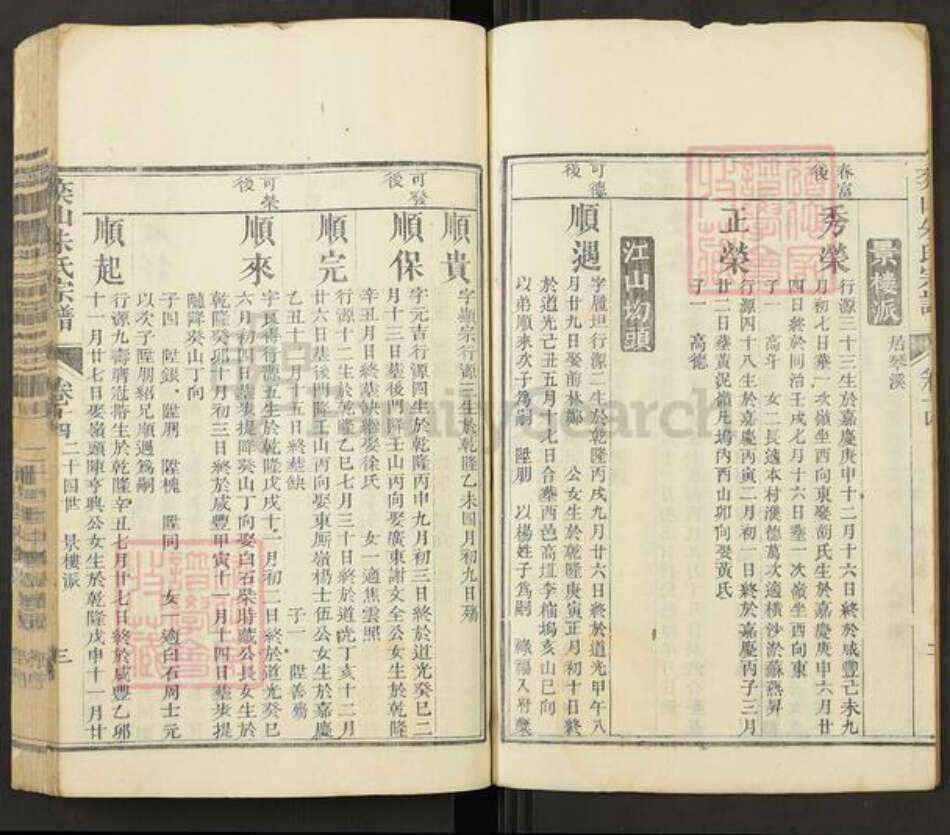 景樓派
居琴溪
春富後
秀榮
行源三十三生於嘉慶庚申十二月十六日終於咸豐己未九
月初七日塟一次嶺坐西向東娶胡氏生於嘉慶庚申六月廿
四日終於同治壬戌七月十六日塟一次嶺坐西向東
子一 高斗 女二長適本村濮德萬次適橫沙淤蘇燕昇
正榮
行源四十八生於嘉慶丙寅二月初一日終於嘉慶丙子三月
廿二日塟黃泥嶺凡塢內酉山卯向娶黃氏
子一 高德
江山坳頭
可德後
順遇
字履坦行源二生於乾隆丙戌九月廿六日終於道光甲午八
月廿九日娶前林鄭 公女生於乾隆庚寅正月初十日終
於道光己丑五月十七日合塟西邑高 李楠塢亥山巳向
以弟順來次子為嗣 陞朋 以楊姓子為嗣 祿福入府
可發後
順貴
字 宗行源三生於乾隆乙未四月初九日殤
順保
字元吉行源四生於乾隆丙申九月初三日終於道光癸巳二
月十三日塟後門降壬山丙向娶廣東謝文全公女生於乾隆
辛丑月日終塟缺 娶徐氏 女一適焦雲照
順完
行源十二生於乾隆乙巳七月三十日終於道光丁亥十二月
廿六日塟後門降壬山丙向娶東厮嶺楊士伍公女生於嘉慶
乙丑十月十五日終塟缺 子一 陞善殤
可榮後
順來
字良 行源五生於乾隆戊戌十一月初二日終於道光癸巳
六月初四日塟步提降癸山丁向娶白石柴時聽公長女生於
乾隆癸卯十月初三日終於咸豐甲寅十一月十四日塟步提
隨降癸山丁向
子四 陞銀 陞朋 陞槐 陞同 女一適白石周士元
以次子陞朋紹兄順遇為嗣
順起
行源九壽膺冠帶生於乾隆辛丑七月廿七日終於咸豐乙卯
十一月廿七日娶嶺頭陳亨興公女生於乾隆戊申十一月廿
山朱氏宗譜
卷十四
二十四世 景樓派
三
FamilySearch